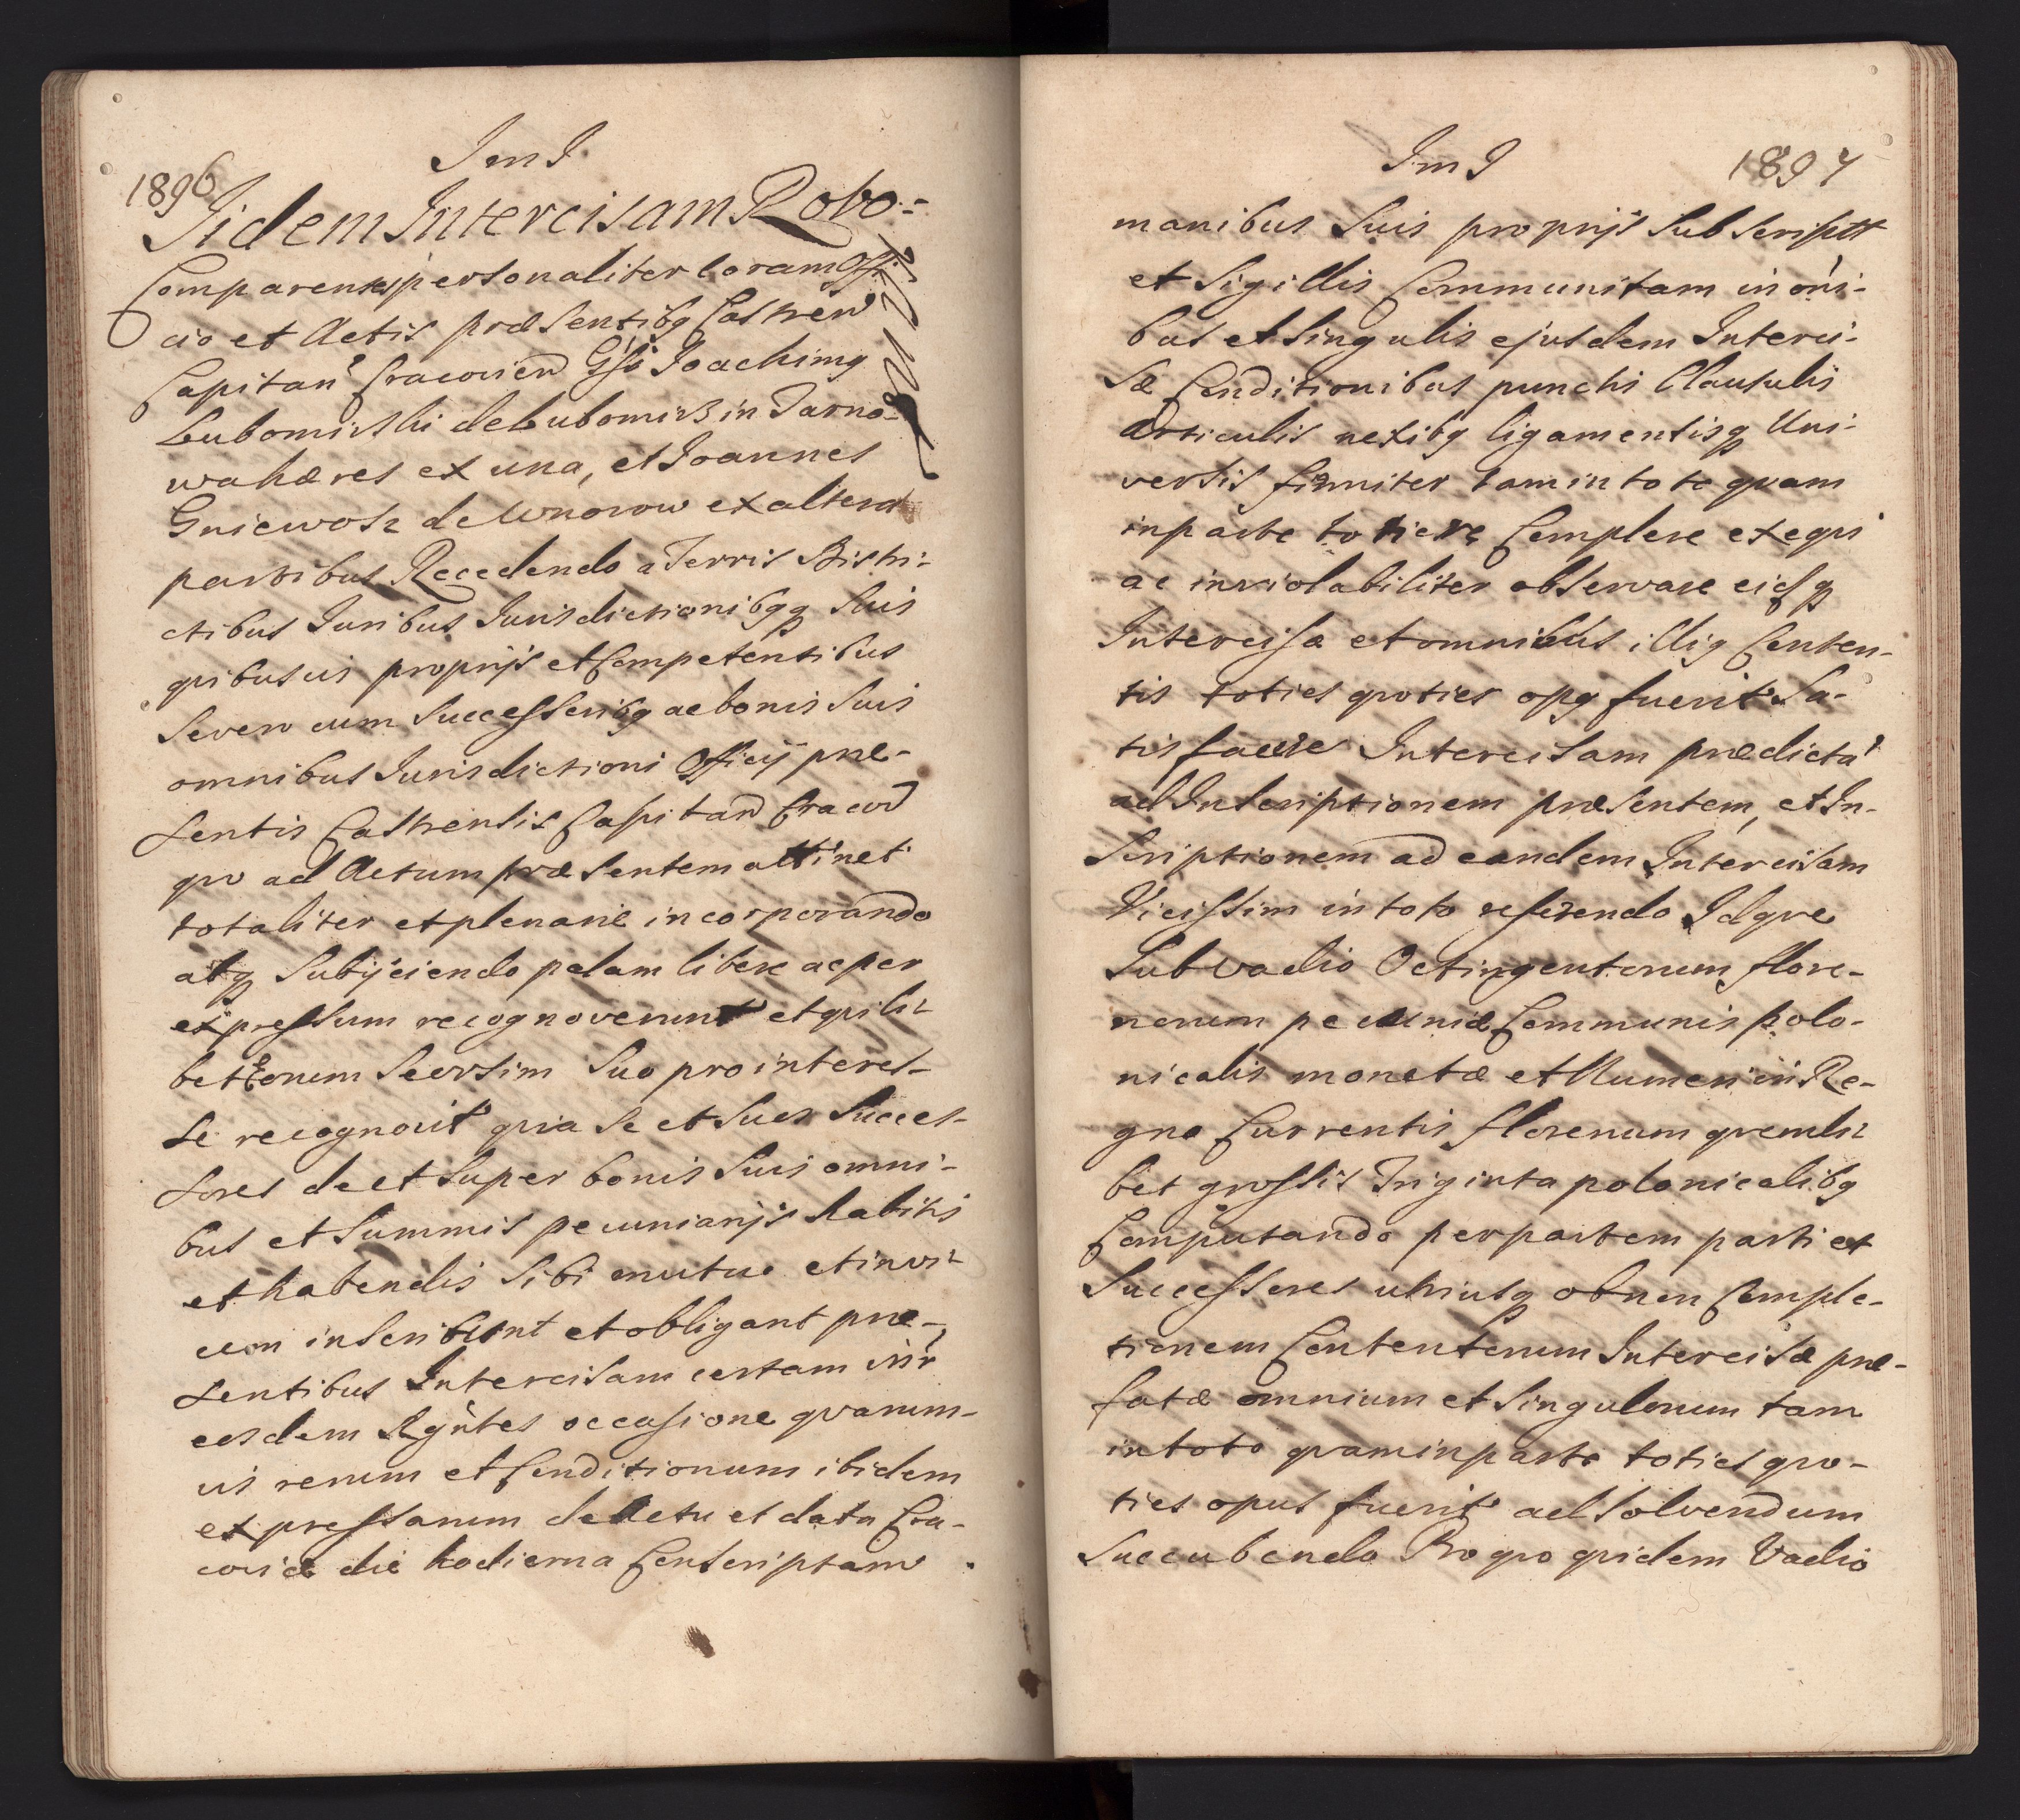 1896
ImI
Iidem Intercisam Robo-
Comparentes personaliter Coram Offi-
cio et Actis præsentibq Castren
Capitan Cracovien Gsi Joachimq
Lubomirski de Lubomirz in Tarno-
wa hæres ex una, et Joannes
Gniewosz de Wnorow ex altera
partibus Recedendo a Terris Distri-
ctibus Iuribus Iurisdictionibqq Suis
qvibusvis proprijs et Competentibus
Severo cum Successoribq ac bonis Suis
omnibus Iurisdictioni Officij præ-
sentis Castrensis Capitan Cracov
qvo ad Actum præsentem attinet
totaliter et plenarie incorporando
atq Subijciendo palam libere ac per
expressum recognoverunt et qvili-
bet Eorum Seorsim Suo pro interes-
se recognovit qvia Se et Suos Succes-
sores de et Super bonis Suis omni-
bus et Summis pecuniarijs habitis
et habendis Sibi mutuo et invi-
cem inscribunt et obligant præ-
sentibus Intercisam certam inr
eosdem Rgntes occasione qvarum-
vis rerum et Conditionum ibidem
expressarum de Actu et data Cra-
coviæ die hodierna Conscriptam
ImI
1897
manibus Suis proprijs Subscriptt
et Sigillis Communitam in oni-
bus et Singulis ejusdem Interci-
sæ Conditionibus punctis Clausulis
Articulis nexibq ligamentisq Uni-
versis firmiter tam in toto qvam
in parte totiere Complere exeqvi
ac inviolabiliter observare eidq
Intercisæ et omnibus illiq Conten-
tis toties qvoties opq fuerit Sa-
tisfacere Intercisam prædicta
ad Inscriptionem præsentem, et In-
scriptionem ad eandem Intercisam
Vicissim in toto referendo Idqve
Sub vadio Octingentorum flore-
norum pecuniæ Communis polo-
nicalis monetæ et Numeri in Re-
gno Currentis florenum qvemli-
bet grossis Triginta polonicalibq
Computando per partem parti et
Successores utriusq ob non Comple-
tionem Contentorum Intercisæ præ-
fatæ omnium et Singulorum tam
in toto qvam in parte toties qvo-
ties opus fuerit ad Solvendum
Succubendo Pro qvo qvidem Vadio